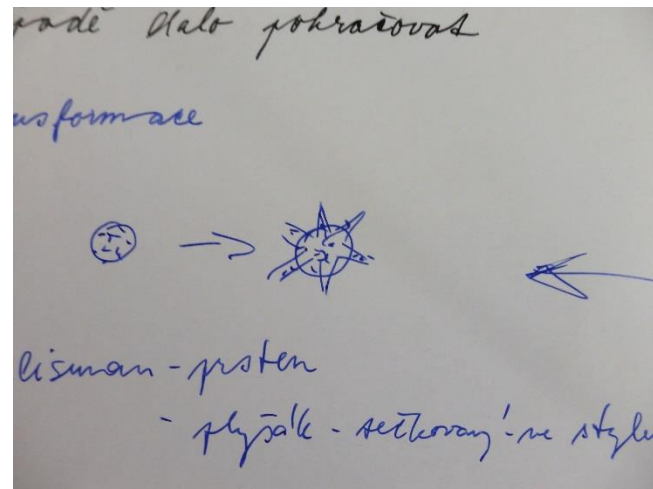 padě dalo pokračovat
nsformace
lisman - prsten
- plyšák - sešívaný - ve stylu